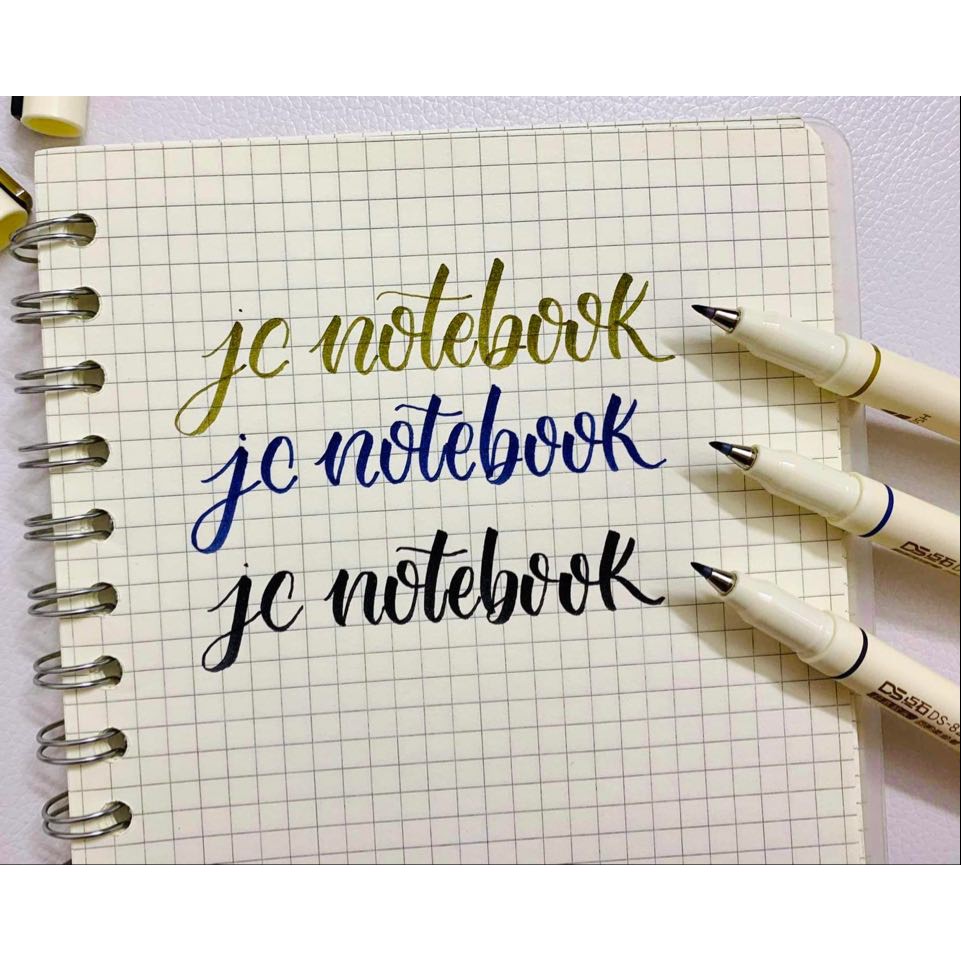 jc notebook
jc notebook
jc notebook